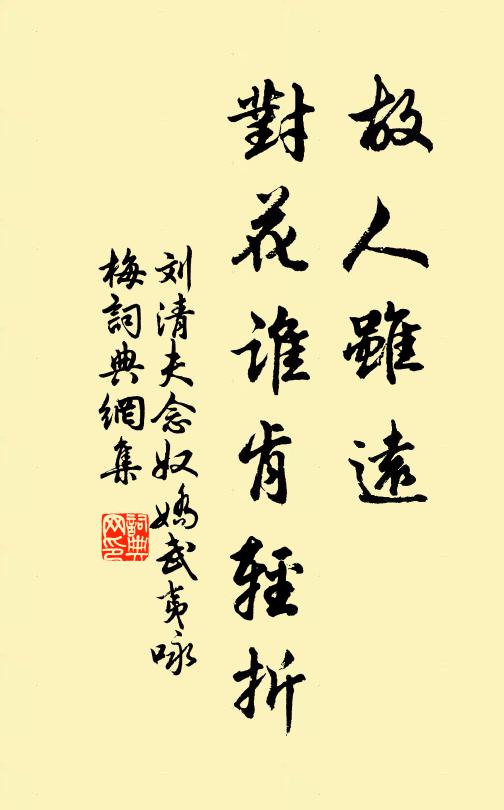 故人雖遠
對花誰肯輕折
刘清夫念奴嬌武夷咏
梅詞典網集
詞典网印